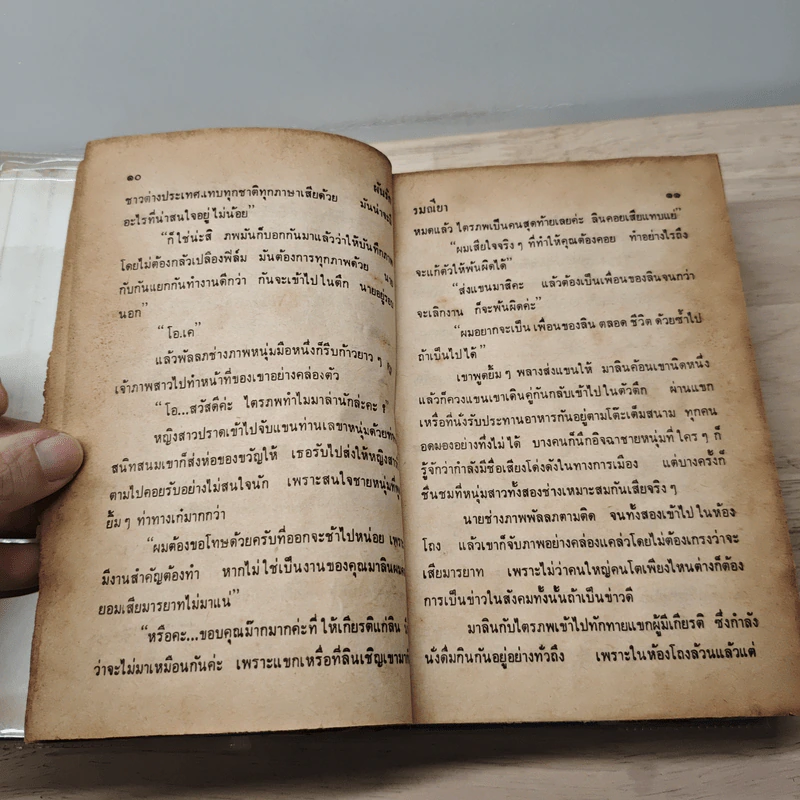 ๑๐
ชาวต่างประเทศแทบทุกชาติทุกภาษาเสียด้วย มันน่าจะมี
อะไรที่น่าสนใจอยู่ไม่น้อย”
“ก็ใช่น่ะสิ ภพมันก็บอกกันมาแล้วว่าให้บันทึกภาพ
โดยไม่ต้องกลัวเปลืองฟิล์ม มันต้องการทุกภาพด้วย นาย
กับกันแยกกันทำงานดีกว่า กันจะเข้าไปในตึก นายอยู่รอบ
นอก”
“โอ.เค”
แล้วพัลลภช่างภาพหนุ่มมือหนึ่งก็รีบก้าวยาว ๆ
เจ้าภาพสาวไปทำหน้าที่ของเขาอย่างคล่องตัว
“โอ...สวัสดีค่ะ ไตรภพทำไมมาล่านักล่ะคะ ?”
หญิงสาวปราดเข้าไปจับแขนท่านเลขาหนุ่มด้วย
สนิทสนมเขาก็ส่งห่อของขวัญให้ เธอรับไปส่งให้หญิงสาว
ตามไปคอยรับอย่างไม่สนใจนัก เพราะสนใจชายหนุ่มที่
ยิ้ม ๆ ท่าทางเก๋มากกว่า
“ผมต้องขอโทษด้วยครับที่ออกจะช้าไปหน่อย เพราะ
มีงานสำคัญต้องทำ หากไม่ใช่เป็นงานของคุณมาลินผม
ยอมเสียมารยาทไม่มาแน่”
“หรือคะ...ขอบคุณม๊ากมากค่ะที่ให้เกียรติแก่ลิน
ว่าจะไม่มาเหมือนกันค่ะ เพราะแขกเหรื่อที่ลินเชิญเขามา
รมณียา ๑๑
หมดแล้ว ไตรภพเป็นคนสุดท้ายเลยค่ะ ลินคอยเสียแทบแย่”
“ผมเสียใจจริง ๆ ที่ทำให้คุณต้องคอย ทำอย่างไรถึง
จะแก้ตัวให้พ้นผิดได้”
“ส่งแขนมาสิคะ แล้วต้องเป็นเพื่อนของลินจนกว่า
จะเลิกงาน ก็จะพ้นผิดค่ะ”
“ผมอยากจะเป็นเพื่อนของลิน ตลอด ชีวิต ด้วยซ้ำไป
ถ้าเป็นไปได้”
เขาพูดยิ้ม ๆ พลางส่งแขนให้ มาลินค้อนเขานิดหนึ่ง
แล้วก็ควงแขนเขาเดินคู่กันกลับเข้าไปในตัวตึก ผ่านแขก
เหรื่อที่นั่งรับประทานอาหารกันอยู่ตามโต๊ะเต็มสนาม ทุกคน
อดมองอย่างทึ่งไม่ได้ บางคนก็นึกอิจฉาชายหนุ่มที่ใคร ๆ ก็
รู้จักว่ากำลังมีชื่อเสียงโด่งดังในทางการเมือง แต่บางครั้งก็
ชื่นชมที่หนุ่มสาวทั้งสองช่างเหมาะสมกันเสียจริง ๆ
นายช่างภาพพัลลภตามติด จนทั้งสองเข้าไปในห้อง
โถง แล้วเขาก็จับภาพอย่างคล่องแคล่วโดยไม่ต้องเกรงว่าจะ
เสียมารยาท เพราะไม่ว่าคนใหญ่คนโตเพียงไหนต่างก็ต้อง
การเป็นข่าวในสังคมทั้งนั้นถ้าเป็นข่าวดี
มาลินกับไตรภพเข้าไปทักทายแขกผู้มีเกียรติ ซึ่งกำลัง
นั่งดื่มกินกันอยู่อย่างทั่วถึง เพราะในห้องโถงล้วนแล้วแต่